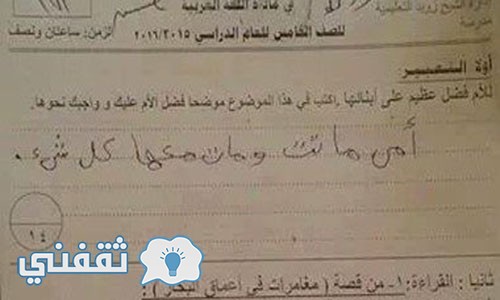 في مادة اللغة العربية
للصف الخامس للعام الدراسي ٢٠١٦/٢٠١٥
الزمن: ساعتان ونصف
أولا التعبير:
للأم فضل عظيم على أبنائها. اكتب في هذا الموضوع موضحا فضل الأم عليك و واجبك نحوها.
أمى ماتت ومات معها كل شىء.
١٤
ثقفني
ثانيا: القراءة: ١- من قصة ( مغامرات في أعماق البحار ) :